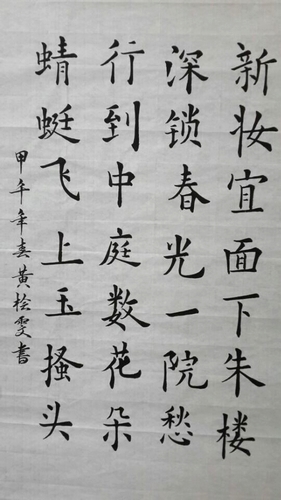 新妆宜面下朱楼
深锁春光一院愁
行到中庭数花朵
蜻蜓飞上玉搔头
甲午年春黄桧雯书